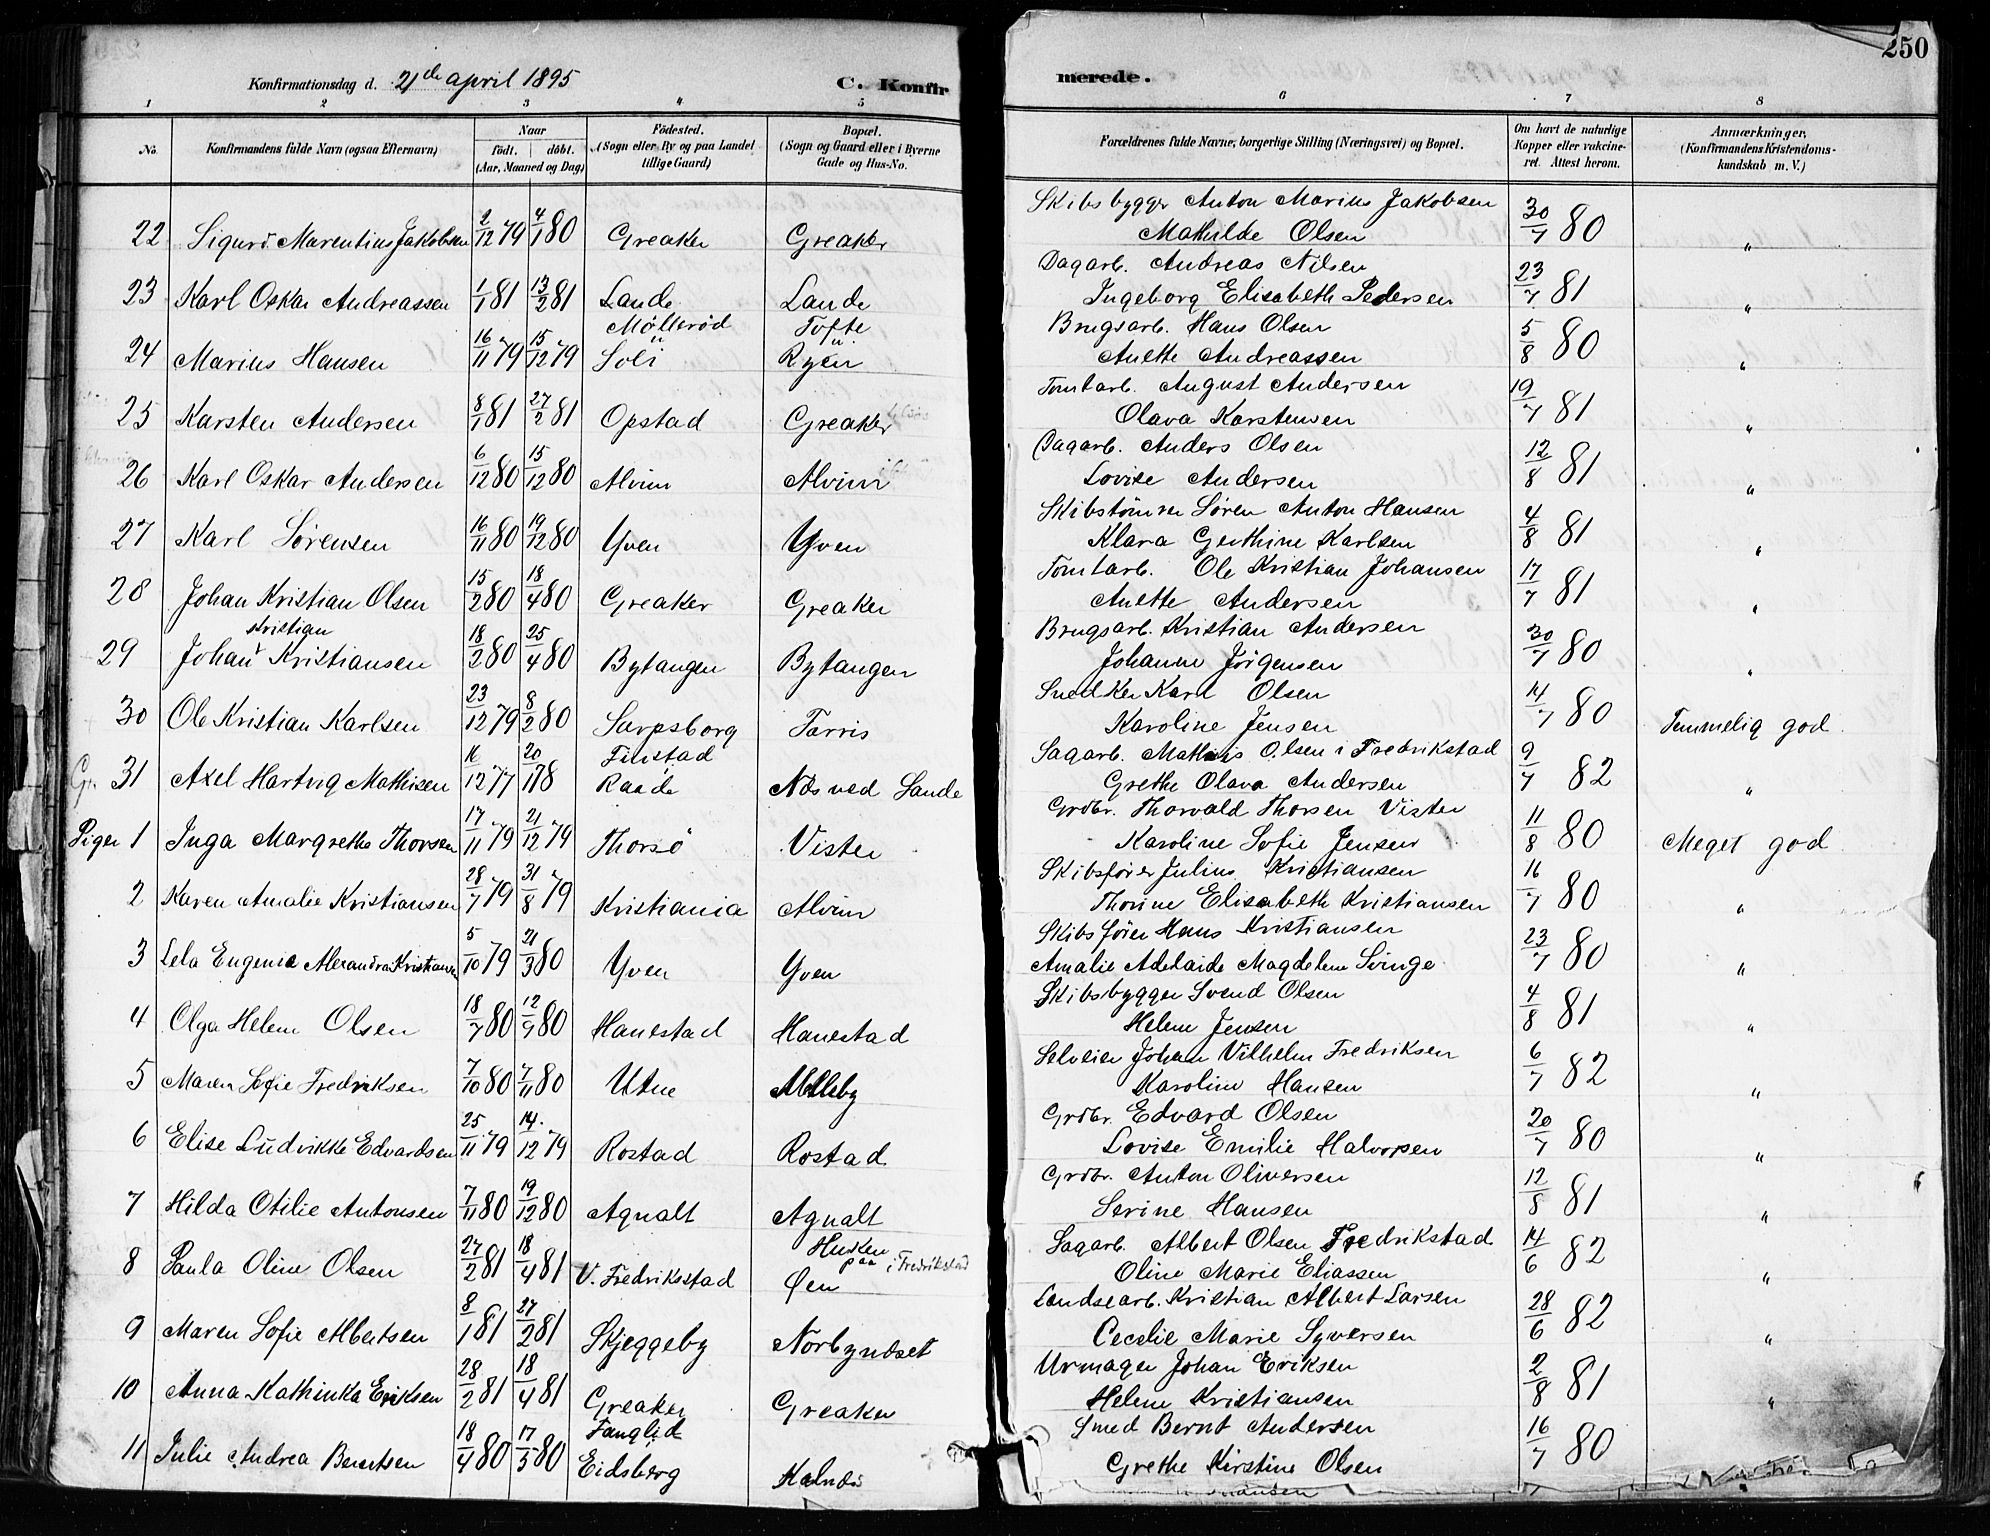 250
Konfirmationsdag d. 21de april 1895
C. Konfir
merede.
1 2 3 4 5 6 7 8
No.
Konfirmandens fulde Navn (ogsaa Efternavn)
Naar
födt. döbt.
(Aar, Maaned og Dag)
Födested.
(Sogn eller By og paa Landet
tillige Gaard)
Bopæl.
(Sogn og Gaard eller i Byerne
Gade og Hus-No.
Forældrenes fulde Navne, borgerlige Stilling (Næringsvei) og Bopæl.
Om havt de naturlige
Kopper eller vakcine-
ret. Attest herom.
Anmærkninger,
(Konfirmandens Kristendoms-
kundskab m. V.)
22 Sigurd Marentius Jakobsen 2/12 79 4/1 80 Greaker Greaker Skibsbygger Anton Marius Jakobsen
Mathilde Olsen 30/7 80 "
23 Karl Oskar Andreassen 1/1 81 13/2 81 Lande Lande Dagarb. Andreas Nilsen
Ingeborg Elisabeth Pedersen 23/7 81 "
24 Marius Hansen 16/11 79 15/12 79 Mölleröd Soli Tofte Ryen Brugsarb. Hans Olsen
Anette Andreassen 5/8 80 "
25 Karsten Andersen 8/1 81 27/2 81 Opstad Greaker Tomtarb. August Andersen
Olava Karstensen 19/7 81 "
26 Karl Oskar Andersen 6/12 80 15/12 80 Alvim Alvim Dagarb. Anders Olsen
Lovise Andersen 12/8 81 "
27 Karl Sørensen 16/11 80 19/12 80 Yven Yven Skibstömrer Søren Anton Hansen
Klara Gerthine Karlsen 4/8 81 "
28 Johan Kristian Olsen 15/2 80 18/4 80 Greaker Greaker Tomtarb. Ole Kristian Johansen
Anette Andersen 17/7 81 "
29 Johan Kristian Kristiansen 18/2 80 25/4 80 Bytangen Bytangen Brugsarb. Kristian Andersen
Johanne Jörgensen 30/7 80 "
30 Ole Kristian Karlsen 23/12 79 8/2 80 Sarpsborg Torris Snedker Karl Olsen
Karoline Jensen 14/7 80 Temmelig god
31 Axel Hartvig Mathisen 16/12 77 20/1 78 Filistad Raade Næs ved Lande Sagarb. Mathis Olsen i Fredrikstad
Grethe Olava Andersen 9/7 82 "
Piger 1 Inga Margrethe Thorsen 17/11 79 21/12 79 Thorsö Vister Grdbr. Thorvald Thorsen Vister
Karoline Sofie Jensen 11/8 80 Meget god
2 Karen Amalie Kristiansen 28/7 79 31/8 79 Kristiania Alvim Skibsförer Julius Kristiansen
Thorine Elisabeth Kristiansen 16/7 80 "
3 Lela Eugenia Alexandra Kristiansen 5/10 79 21/3 80 Yven Yven Skibsförer Hans Kristiansen
Amalie Adelaide Magdelene Svinge 23/7 80 "
4 Olga Helene Olsen 18/7 80 12/9 80 Hanestad Hanestad Skibsbygger Svend Olsen
Helene Jensen 4/8 81 "
5 Maren Sofie Fredriksen 7/10 80 7/11 80 Utne Melleby Selveier Johan Vilhelm Fredriksen
Karoline Hansen 6/7 82 "
6 Elise Ludvikke Edvardsen 25/11 79 14/12 79 Rostad Rostad Grdbr. Edvard Olsen
Lovise Emilie Halvorsen 20/7 80 "
7 Hilda Otilie Antonsen 7/11 80 19/12 80 Agnalt Agnalt Grdbr. Anton Oliversen
Serine Hansen 12/8 81 "
8 Paula Oline Olsen 27/2 81 18/4 81 V. Fredrikstad Husken paa Øen i Fredrikstad Sagarb. Albert Olsen Fredrikstad
Oline Marie Eliassen 14/6 82 "
9 Maren Sofie Albertsen 8/1 81 27/2 81 Skjeggeby Norbyødset Landsearb. Kristian Albert Larsen
Cecelie Marie Syversen 28/6 82 "
10 Anna Kathinka Eriksen 28/2 81 18/4 81 Greaker Greaker Urmager Johan Eriksen
Helene Kristiansen 2/8 81 "
11 Julie Andrea Berntsen 18/4 80 17/5 80 Fanglid Eidsberg Kalnæs Smed Bernt Andersen
Grethe Kirstine Olsen 16/7 80